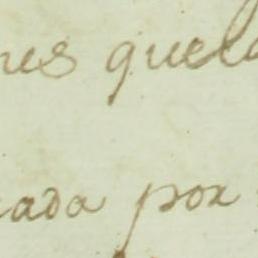 nes quela
cada por